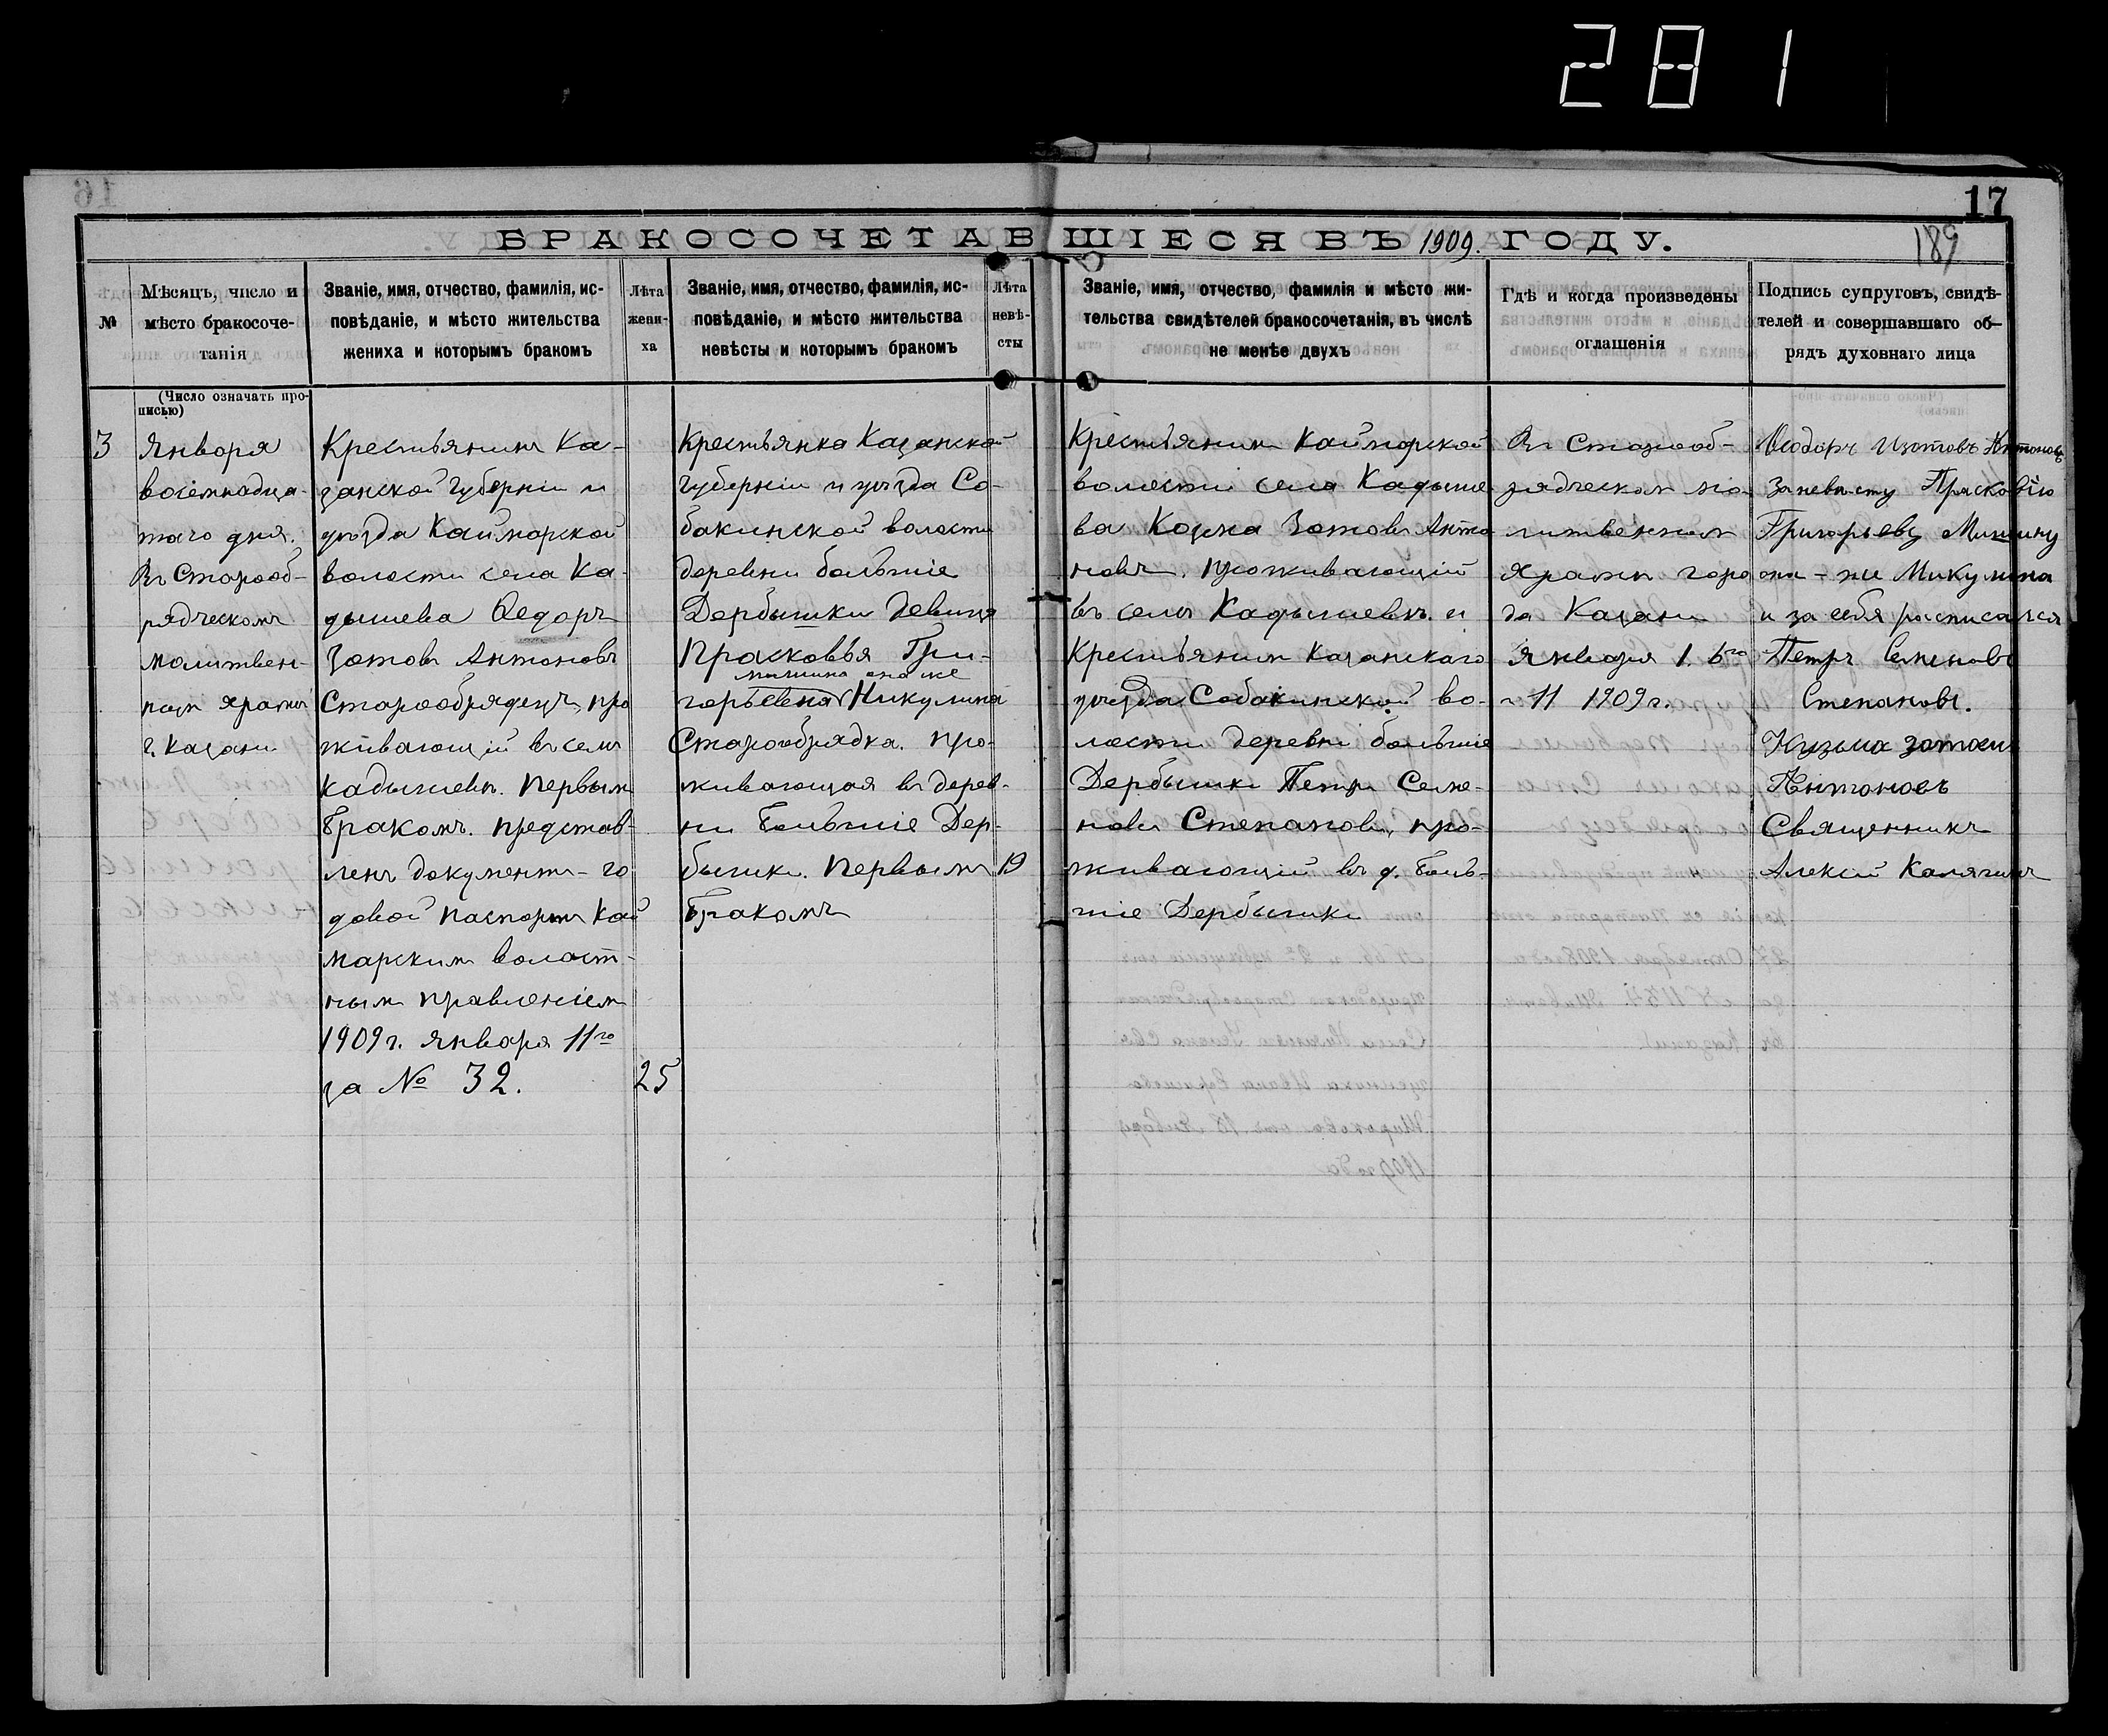 281
17
189
БРАКОСОЧЕТАВШІЕСЯ ВЪ 1909. ГОДУ.
№
Мѣсяцъ, число и
мѣсто бракосоче-
танія
Званіе, имя, отчество, фамилія, ис-
повѣданіе, и мѣсто жительства
жениха и которымъ бракомъ
Лѣта
жени-
ха
Званіе, имя, отчество, фамилія, ис-
повѣданіе, и мѣсто жительства
невѣсты и которымъ бракомъ
Лѣта
невѣ-
сты
Званіе, имя, отчество, фамилія и мѣсто жи-
тельства свидѣтелей бракосочетанія, въ числѣ
не менѣе двухъ
Гдѣ и когда произведены
оглашенія
Подпись супруговъ, свидѣ-
телей и совершавшаго об-
рядъ духовнаго лица
(Число означать про-
писью)
3
Января
восемнадца-
таго дня.
Въ Старооб-
рядческомъ
молитвен-
номъ храмѣ
г. Казани
Крестьянинъ Ка-
занской губерніи и
уѣзда Каймарской
волости села Ка-
дышева Ѳедоръ
Зотовъ Антоновъ
Старообрядецъ, про
живающій въ селѣ
Кадышевѣ. Первымъ
бракомъ. Представ-
ленъ документъ - го
довой паспортъ Кай
марскимъ волост-
нымъ правленіемъ
1909 г. Января 11го
за № 32.
25
Крестьянка Казанской
губерніи и уѣзда Со-
бакинской волости
деревни большіе
Дербышки девица
Прасковья Гри-
мишина она же
горьевна Никулина
Старообрядка. Про-
живающая въ дерев-
ни Большіе Дер-
бышки. Первымъ
бракомъ
19
Крестьянинъ Каймарской
волости села Кадыше-
ва Козма Зотовъ Анто
новъ. Проживающій
въ селѣ Кадышевѣ. и
Крестьянинъ Казанскаго
уѣзда Собакинской во-
лости деревни большіе
Дербышки Петръ Семе-
новъ Степановъ, про-
живающій въ д. Боль-
шіе Дербышки
Въ Старооб-
рядческом мо-
литвенномъ
храмѣ горо
да Казани
Января 1. 6го
и 11 1909 г.
Ѳеодоръ Изотовъ Антоновъ
За невѣсту Прасковію
Григорьеву Мишину
она-же Микулина
и за себя росписался
Петръ Семеновъ
Степановъ.
Кузьма Зотовъ
Антоновъ
Священникъ
Алексій Калягинъ